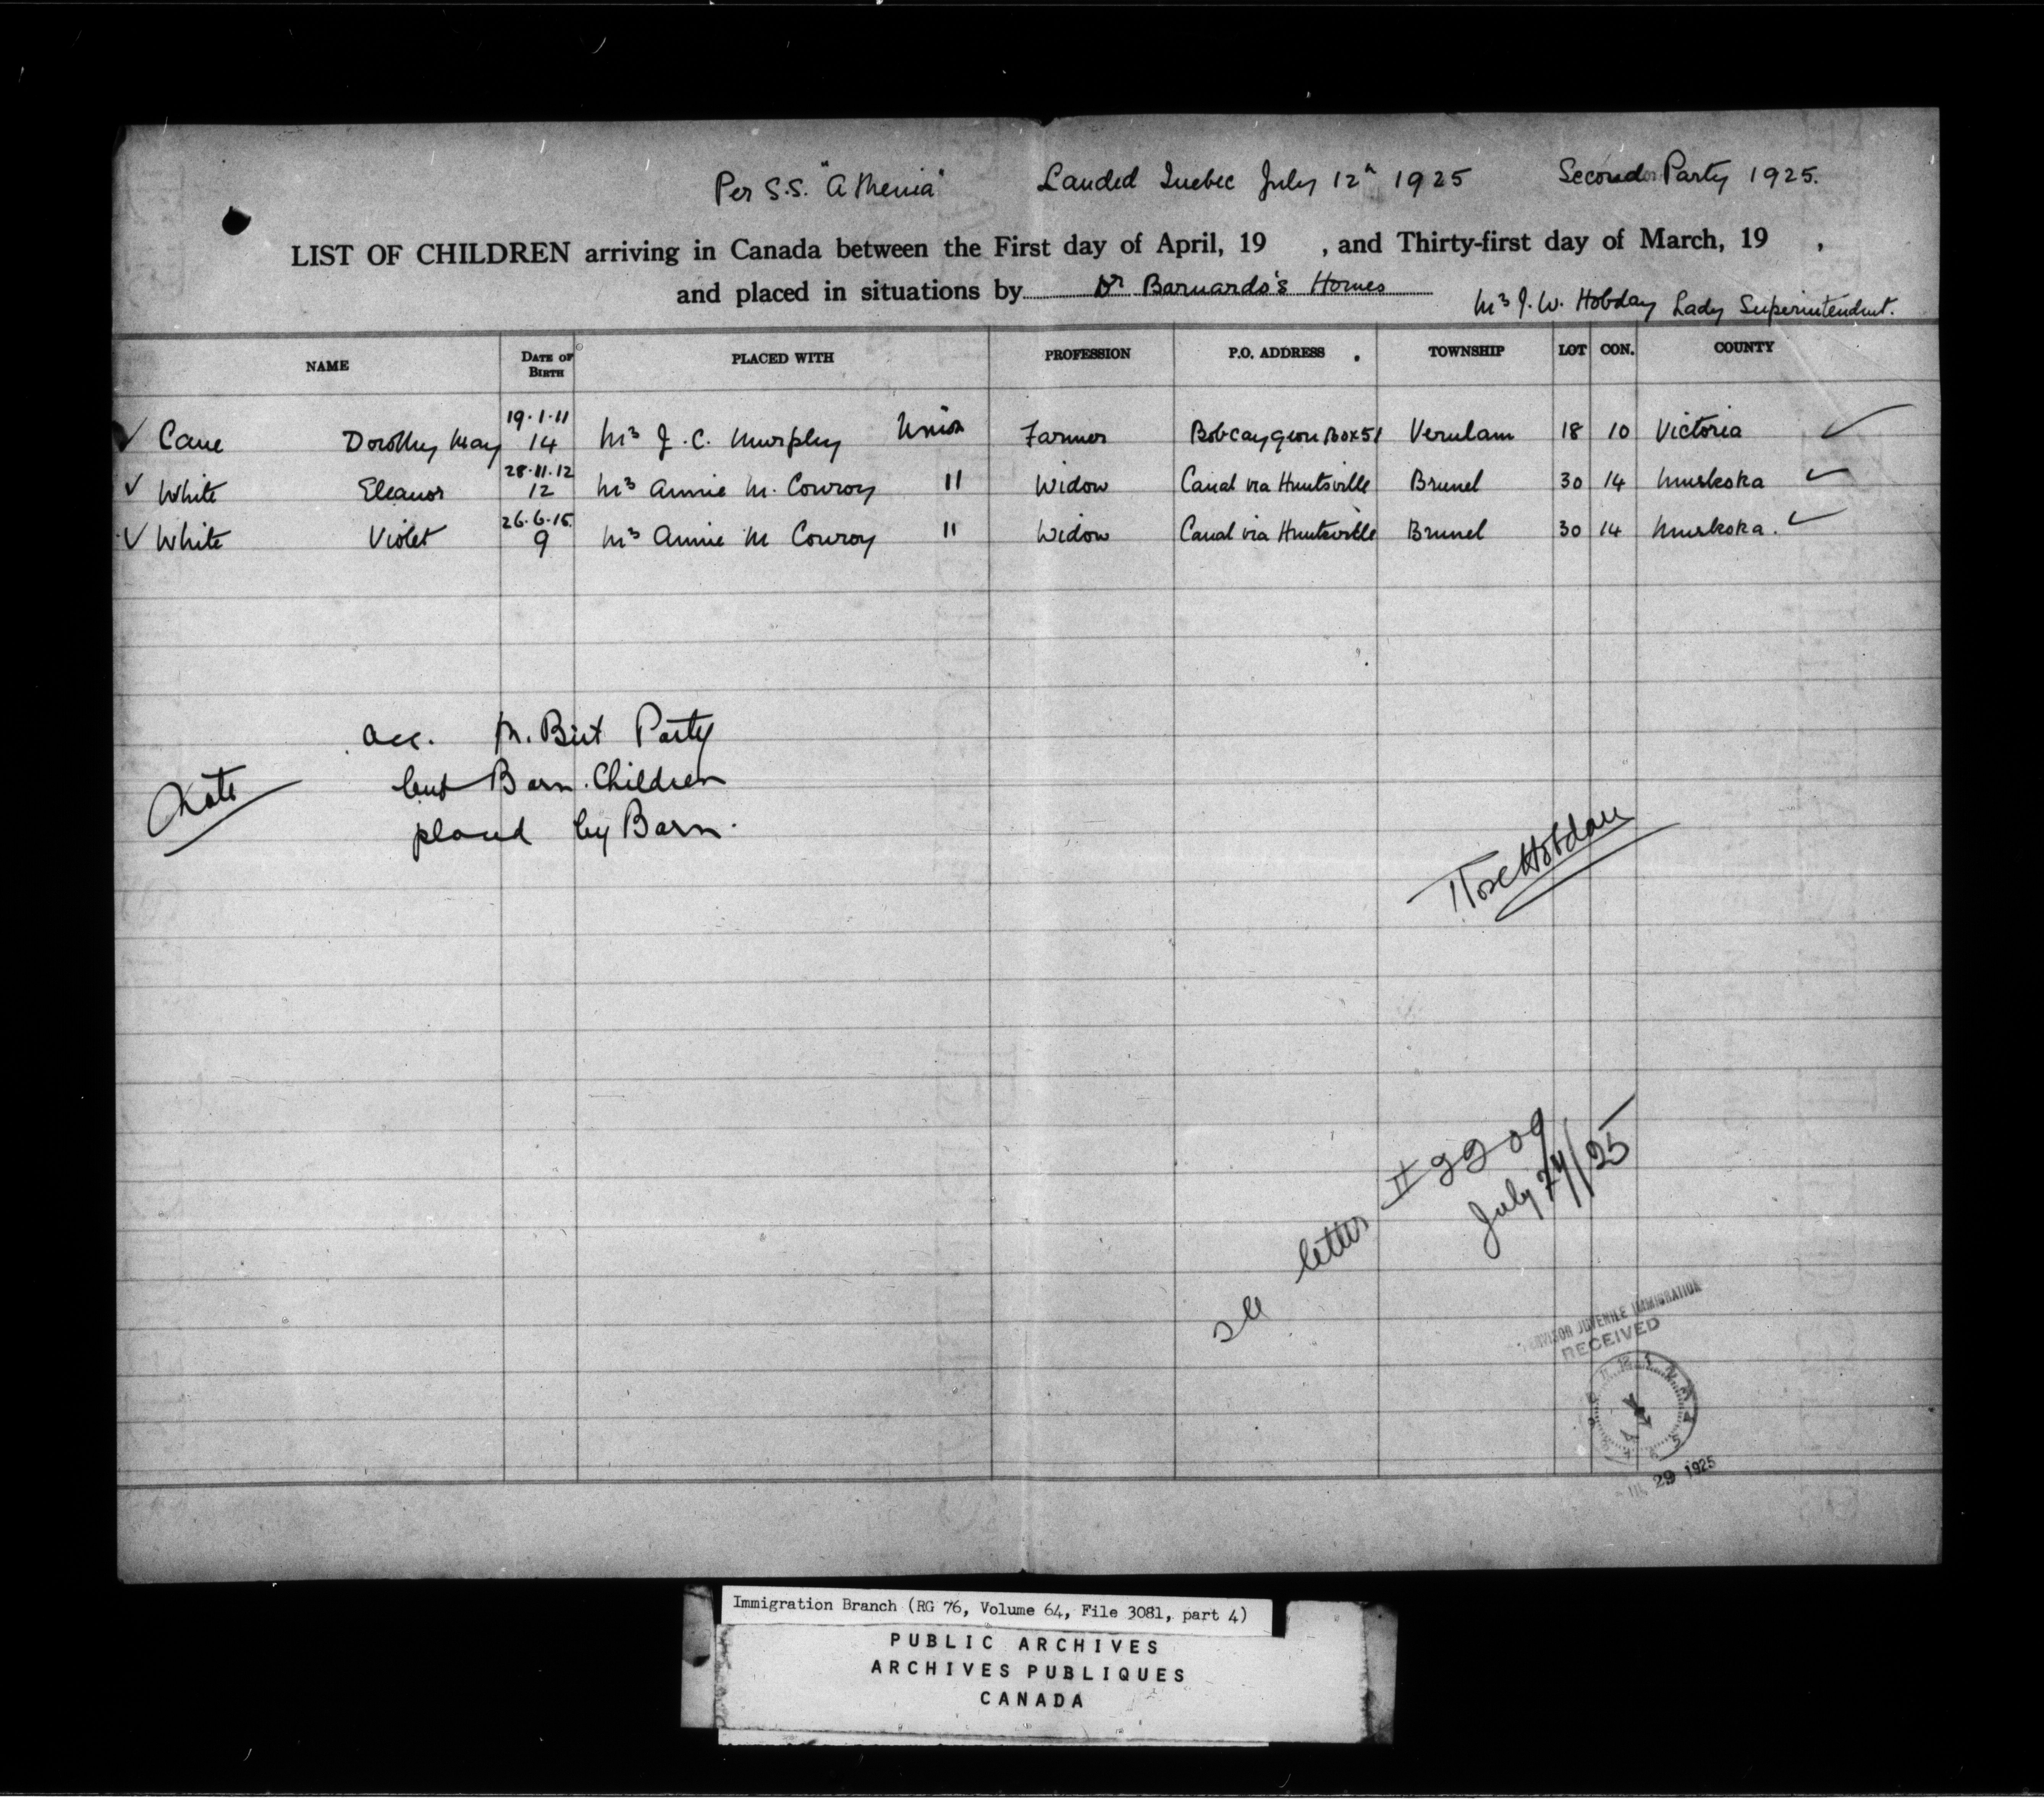 Per S.S. "Athenia" Landed Quebec July 12th 1925 Second Party 1925.
LIST OF CHILDREN arriving in Canada between the First day of April, 19 , and Thirty-first day of March, 19 ,
and placed in situations by Dr Barnardo's Homes Mrs J. W. Hobday Lady Superintendent.
NAME DATE OF BIRTH PLACED WITH PROFESSION P.O. ADDRESS TOWNSHIP LOT CON. COUNTY
19.1.11
✓ Cane Dorothy May 14 Mrs J. C. Murphy Union Farmer Bobcaygeon Box 51 Verulam 18 10 Victoria ✓
28.11.12
✓ White Eleanor 12 Mrs Annie M. Conroy " Widow Canal via Huntsville Brunel 30 14 Muskoka ✓
26.6.15
✓ White Violet 9 Mrs Annie M Conroy " Widow Canal via Huntsville Brunel 30 14 Muskoka. ✓
acc. M. Birt Party
Note but Barn. Children
placed by Barn.
Rose Hobday
see letter II 2209
July 24/25
JUVENILE IMMIGRATION
RECEIVED
29 1925
Immigration Branch (RG 76, Volume 64, File 3081, part 4)
PUBLIC ARCHIVES
ARCHIVES PUBLIQUES
CANADA